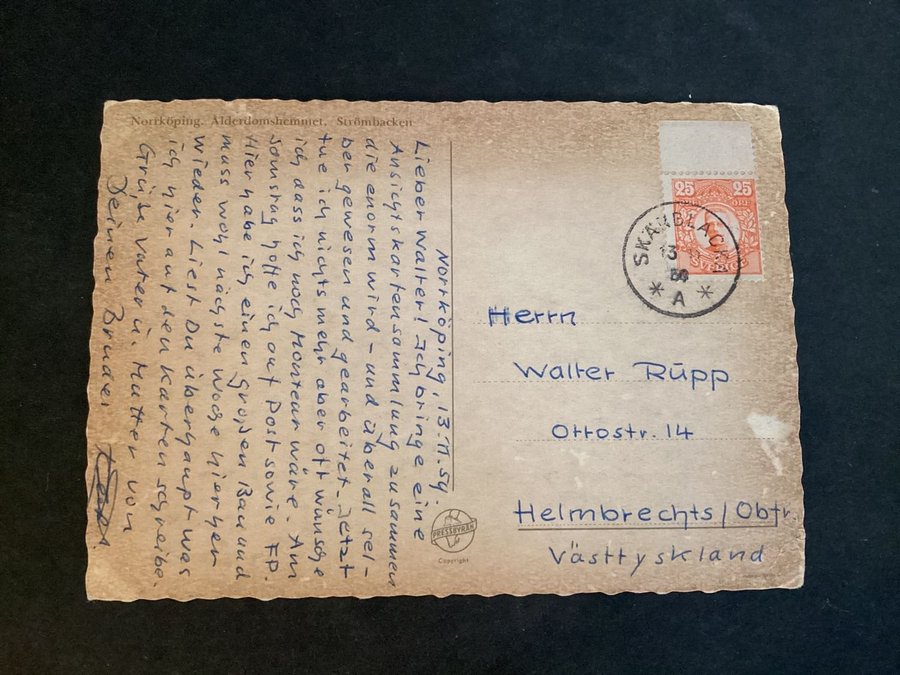 Norrköping. Ålderdomshemmet, Strömbacken
Norrköping, 13.11.54.
Lieber Walter! Ich bringe eine
Ansichtskartensammlung zusammen
die enorm wird - und überall sel-
ber gewesen und gearbeitet. Jetzt
tue ich nichts mehr aber oft wünsche
ich dass ich noch Monteur wäre. Am
Samstag hoffe ich auf Post sowie FP.
Hier habe ich einen großen Bau und
muss wohl nächste Woche hierher
wieder. Liest Du überhaupt was
ich hier auf den Karten schreibe.
Grüße Vater u. Mutter von
Deinen Bruder
25 25
ÖRE
SVERIGE
SKÄRBLACKA
13
* A *
Herrn
Walter Rupp
Ottostr. 14
Helmbrechts/Obfr.
Västtyskland
PRESSBYRÅN
Copyright